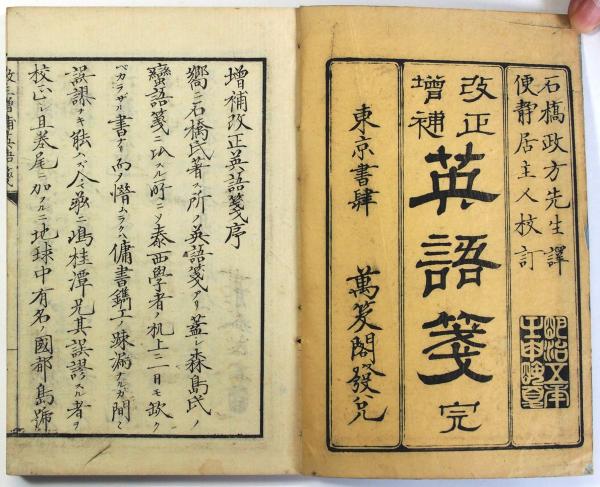 石橋政方先生譯
便静居主人校訂
改正
增補
英語箋 完
東京書肆 萬笈閣發兌
明治五年
壬申晩夏
增補改正英語箋序
嚮ニ石橋氏著ス所ノ英語箋アリ蓋シ森島氏ノ
蠻語箋ニ スル所ニ〆泰西學者ノ机上ニ一日モ欤ク
ベカラザル書 而ノ惜ムラクハ傭書鐫工ノ疎漏ナルカ間ニ
誤謬ナキ能ハズ今茲ニ嶋桂潭兄其誤謬スル者ヲ
校正シ且巻尾ニ加フルニ地球中有名ノ國都島號
改正增補英語箋